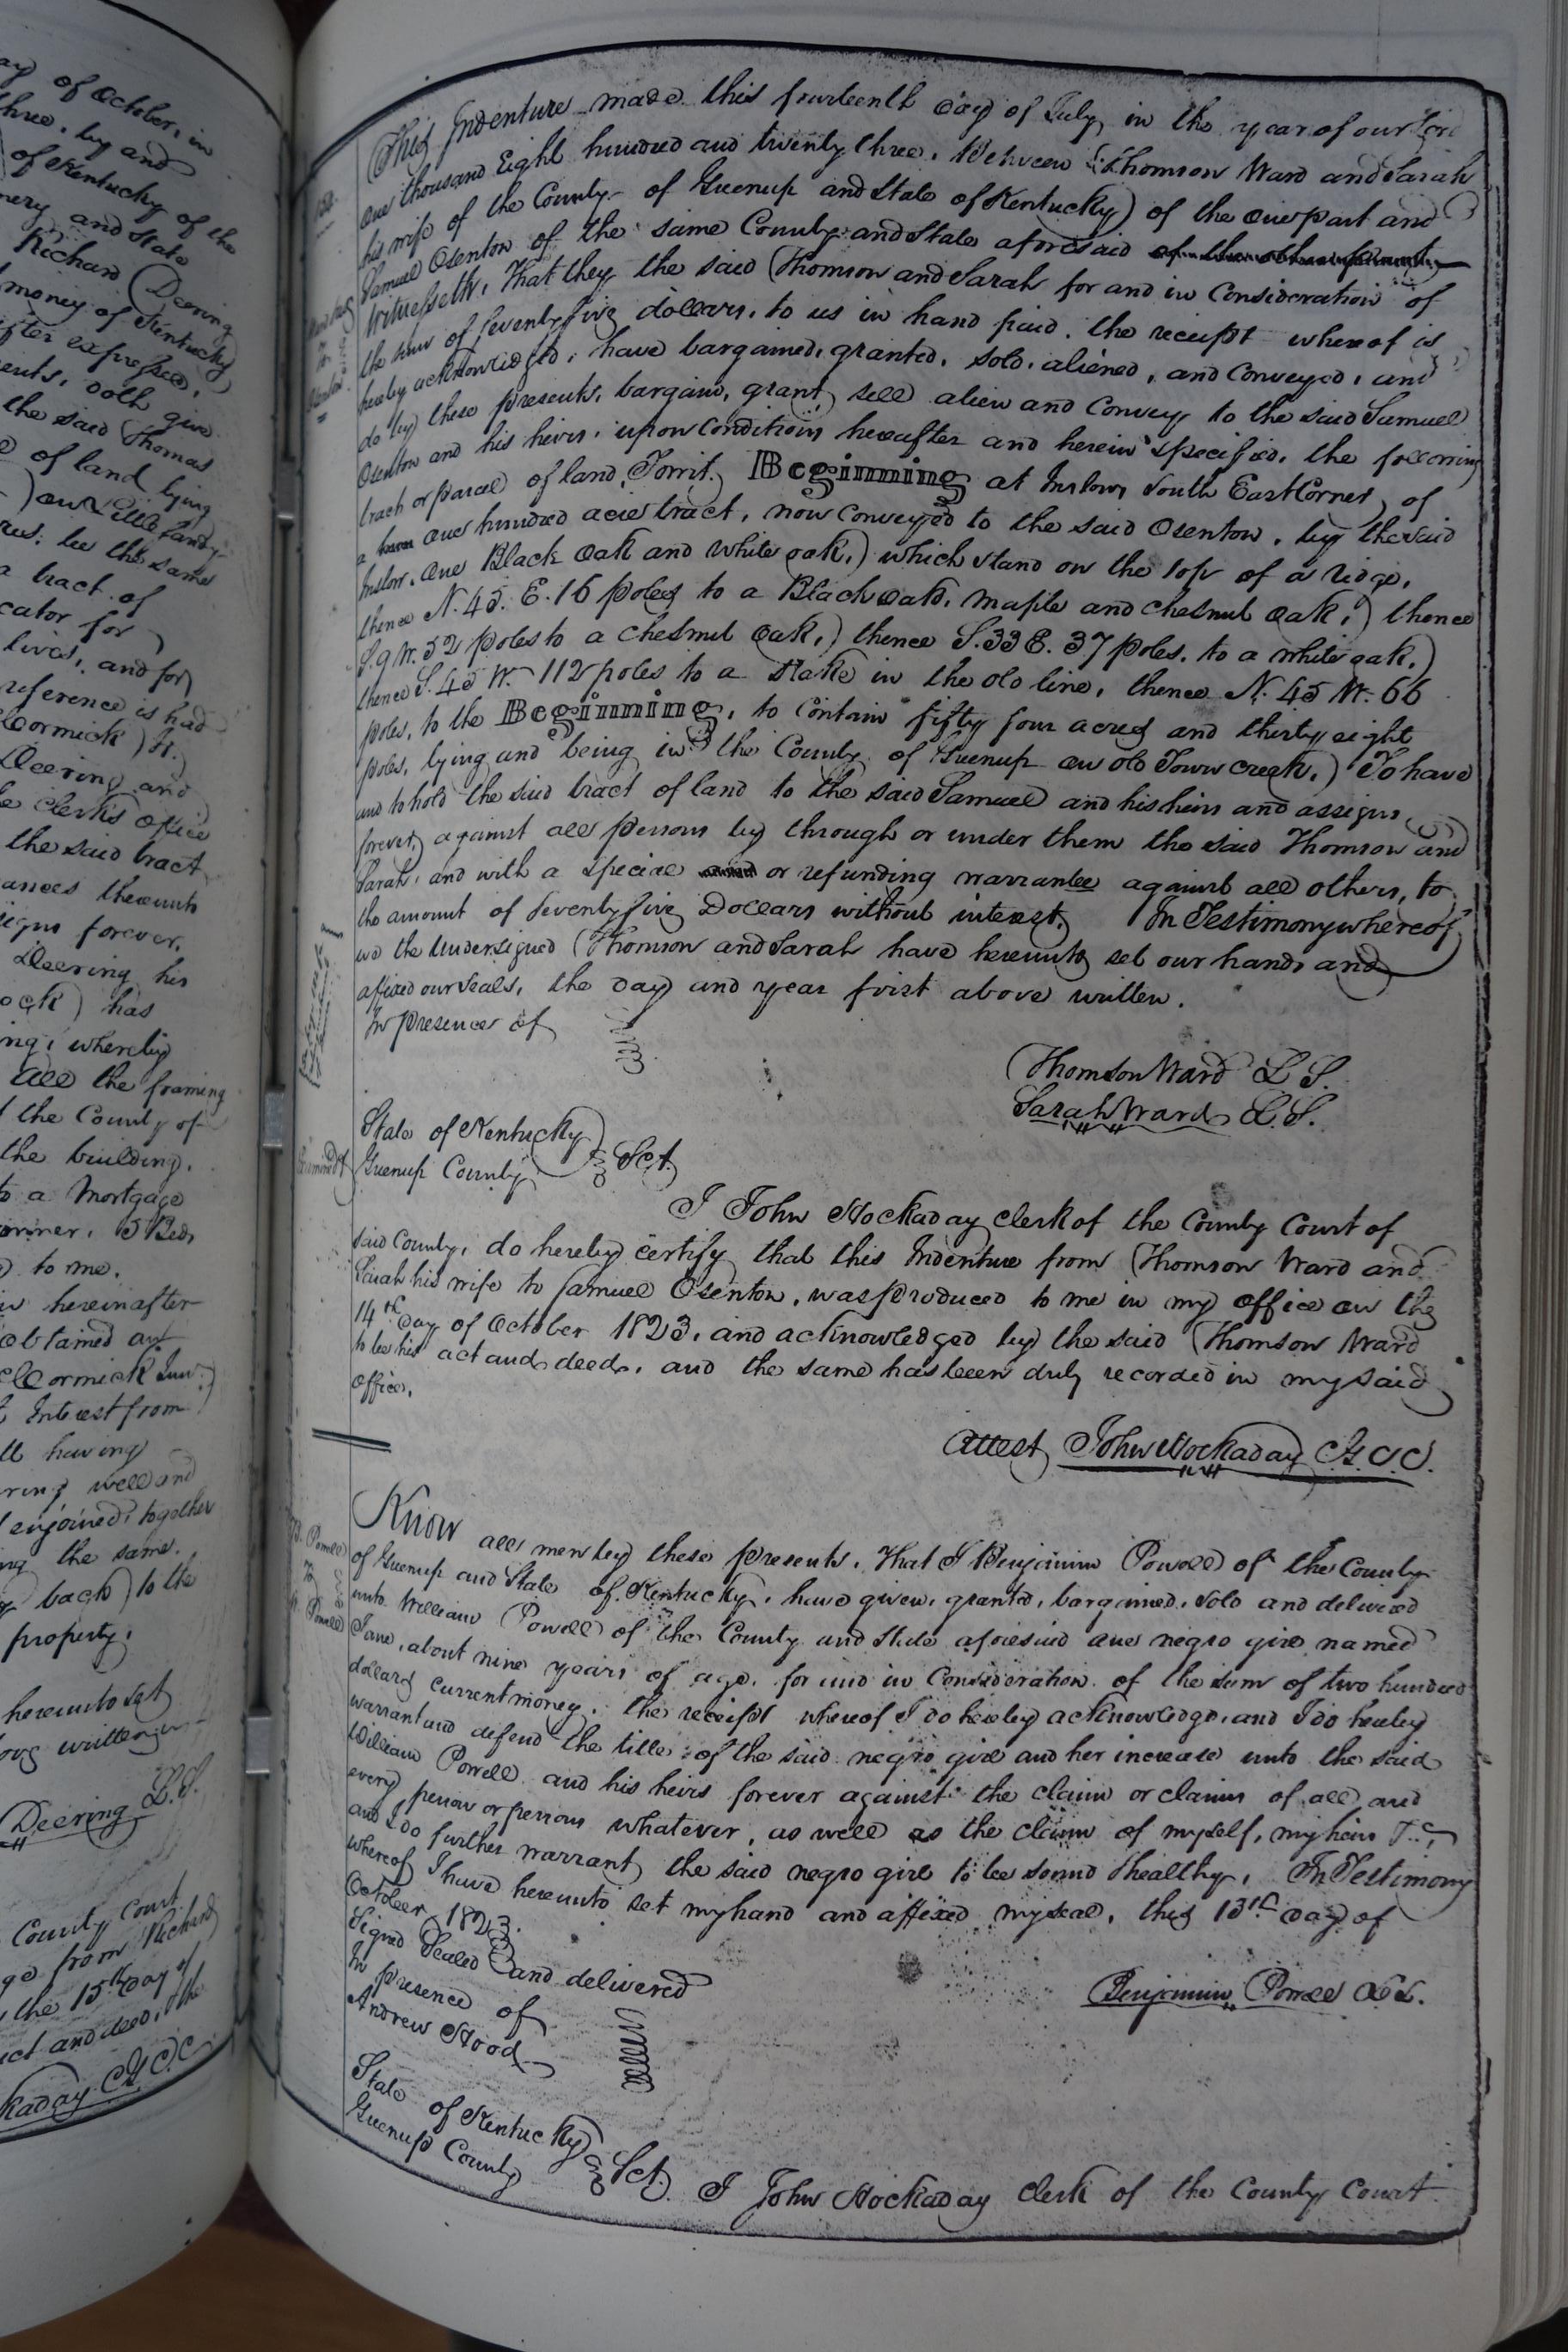 ay of October, in
three, by and
of Kentucky of the
mery and State
Richard Deering
money of Kentucky
after expressed,
ents, doth give
the said Thomas
of land lying
on Little Sandy
the same
a tract of
cator for
lives, and for
reference is had
Cormick
Deering and
clerk's office
the said tract
ances thereunto
igns forever,
Deering his
has
ing, whereby
all the framing
the County of
the building.
to a Mortgage
5 Beds
to me.
hereinafter
obtained
Cormick Jun.
Interest from
having
ring well and
enjoined, together
the same.
back to the
property,
hereunto set
written
Deering L.S.
County Court
from Richard
the 15th day of
act and deed, the
kaday C.G.C.C.
This Indenture made this fourteenth day of July, in the year of our Lord
one thousand Eight hundred and twenty three, Between Thomson Ward and Sarah
his wife of the County of Greenup and State of Kentucky of the one part and
Samuel Osenton of the same County and State aforesaid of the other part
Witnesseth, That they the said Thomson and Sarah for and in Consideration of
the sum of Seventy five dollars, to us in hand paid, the receipt whereof is
hereby acknowledged, have bargained, granted, sold, aliened, and Conveyed, and
do by these presents, bargain, grant, sell alien and Convey to the said Samuel
Osenton and his heirs, upon Conditions hereafter and herein specified, the following
tract or parcel of land, Towit, Beginning at Inslows South East Corner, of
a one hundred acre tract, now conveyed to the said Osenton, by the said
Inslow, One Black Oak and White oak, which stand on the top of a ridge,
thence N. 45. E. 16 poles to a Black oak, maple and chesnut oak, thence
S. 9 W. 52 poles to a chesnut Oak, thence S. 33 E. 37 poles, to a white oak,
thence S. 45 W. 112 poles to a Stake in the old line, thence N. 45 W. 66
poles, to the Beginning, to Contain fifty four acres and thirty eight
poles, lying and being in the County of Greenup on old Town creek, To have
and to hold the said tract of land to the said Samuel and his heirs and assigns
forever, against all persons by through or under them the said Thomson and
Sarah, and with a special or refunding warrantee against all others, to
the amount of Seventy five Dollars without interest. In Testimony whereof
we the Undersigned Thomson and Sarah have hereunto set our hands and
affixed our seals, the day and year first above written.
In presence of
Thomson Ward L S.
Sarah Ward L. S.
State of Kentucky
Greenup County Sct.
I John Hockaday Clerk of the County Court of
said County, do hereby certify that this Indenture from Thomson Ward and
Sarah his wife to Samuel Osenton, was produced to me in my office on the
14th day of October 1823, and acknowledged by the said Thomson Ward
to be his act and deed, and the same has been duly recorded in my said
office.
Attest John Hockaday C.G.C.C.
B. Powell
To
W. Powell
Know all men by these presents, That I Benjamin Powell of the County
of Greenup and State of Kentucky, have given, granted, bargained, sold and delivered
unto William Powell of the County and State aforesaid one negro girl named
Jane, about nine years of age, for and in Consideration of the sum of two hundred
dollars current money, the receipt whereof I do hereby acknowledge, and I do hereby
warrant and defend the title of the said negro girl and her increase unto the said
William Powell and his heirs forever against the claim or claims of all and
every person or persons whatever, as well as the claim of myself, my heirs &c,
and I do further warrant, the said negro girl to be sound & healthy, In Testimony
whereof I have hereunto set my hand and affixed my seal, this 13th day of
October 1823.
Signed Sealed and delivered
In presence of
Andrew Hood
Benjamin Powell
State of Kentucky
Greenup County Sct. I John Hockaday Clerk of the County Court